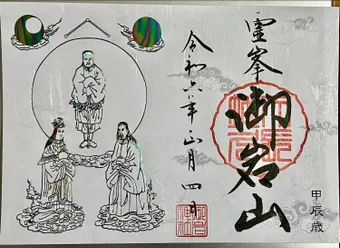 霊峯
御岩山
甲辰歳
令和六年正月四日